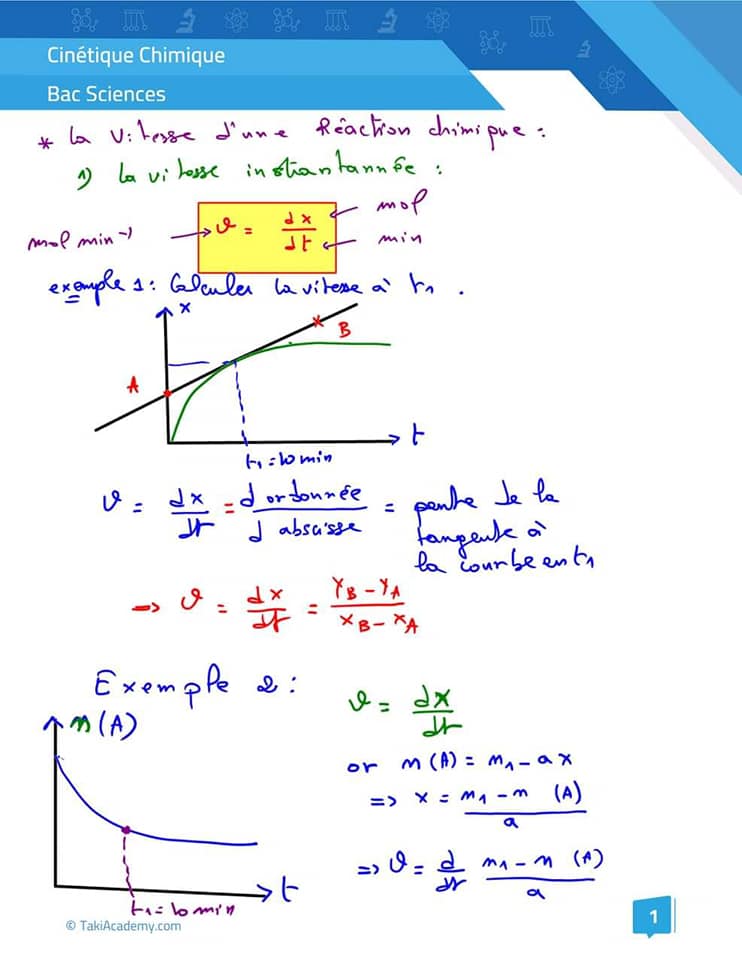 Cinétique Chimique
Bac Sciences
* La vitesse d'une Réaction chimique :
1) la vitesse instantannée :
mol min⁻¹ → v = dx/dt ← mol ← min
exemple 1 : Calculer la vitesse à t₁ .
x
B
A
t
t₁ = 10 min
v = dx/dt = d ordonnée / d abscisse = pente de la
tangente à
la courbe en t₁
=> v = dx/dt = (Y_B - Y_A)/(X_B - X_A)
Exemple 2 :
n(A)
t
t₁ = 10 min
v = dx/dt
or n(A) = n₁ - ax
=> x = (n₁ - n(A))/a
=> v = d/dt (n₁ - n(A))/a
© TakiAcademy.com
1